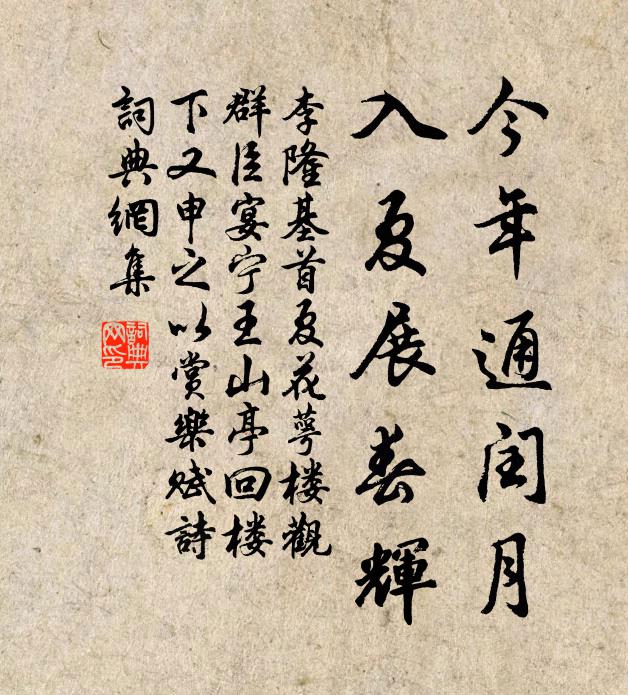 今年通闰月
入夏展春輝
李隆基首夏花萼楼觀
群臣宴宁王山亭回楼
下又申之以赏樂赋詩
詞典網集
詞典网印